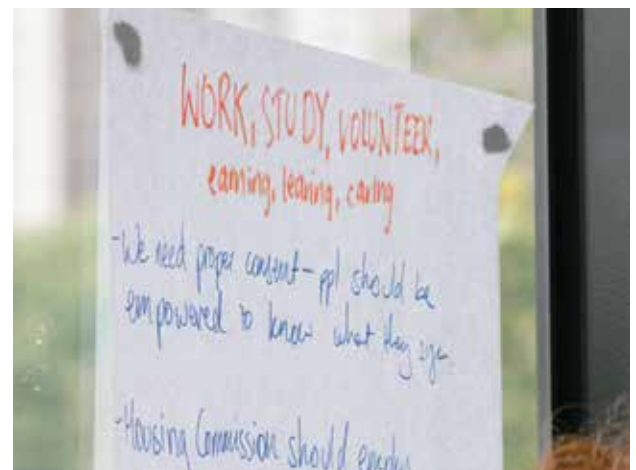 WORK, STUDY, VOLUNTEER,
earning, learing, caring
- We need proper consent - ppl should be
empowered to know what they sign.
- Housing Commission should employ